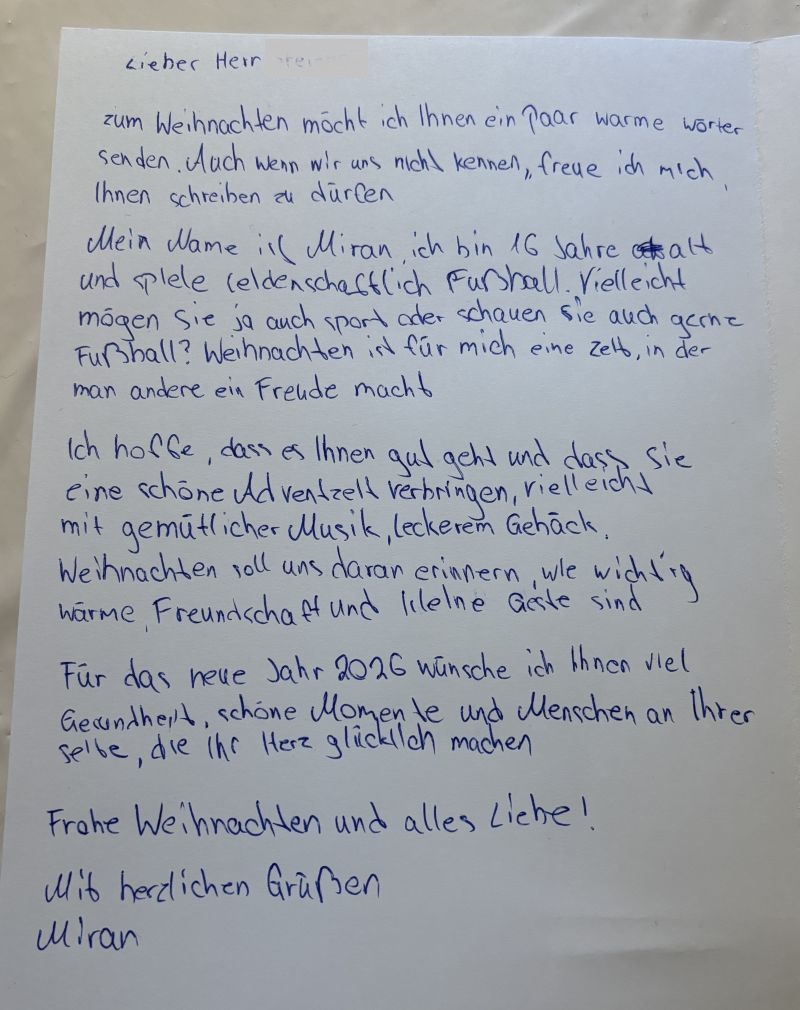 Lieber Herr
zum Weihnachten möcht ich Ihnen ein Paar warme wörter
senden. Auch wenn wir uns nicht kennen, freue ich mich,
Ihnen schreiben zu dürfen
Mein Name ist Miran, ich bin 16 Jahre alt
und spiele leidenschaftlich Fußball. Vielleicht
mögen Sie ja auch sport oder schauen Sie auch gerne
Fußball? Weihnachten ist für mich eine Zeit, in der
man andere ein Freude macht
Ich hoffe, dass es Ihnen gut geht und dass Sie
eine schöne Adventzeit verbringen, vielleicht
mit gemütlicher Musik, leckerem Gebäck.
Weihnachten soll uns daran erinnern, wie wichtig
wärme, Freundschaft und kleine Geste sind
Für das neue Jahr 2026 wünsche ich Ihnen viel
Gesundheit, schöne Momente und Menschen an Ihrer
seite, die Ihr Herz glücklich machen
Frohe Weihnachten und alles Liebe!
Mit herzlichen Grüßen
Miran